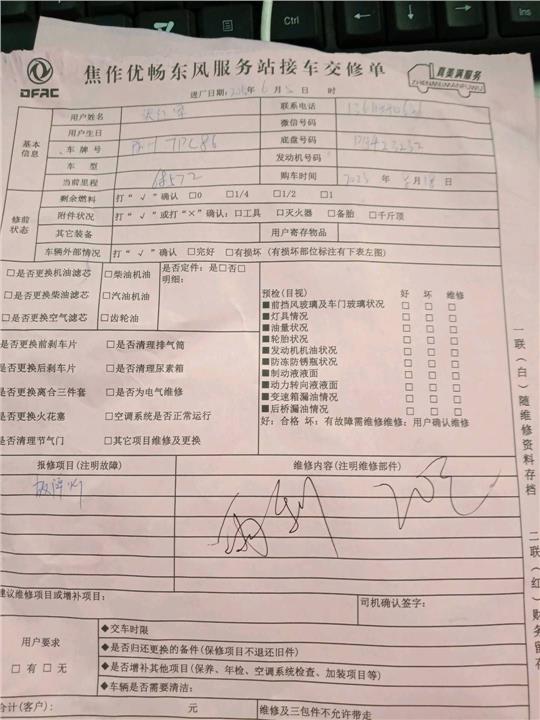 Ctrl
Alt
Ins
DFAC
焦作优畅东风服务站接车交修单
真美满服务
ZHENMEIMANFUWU
进厂日期: 年 6 月 日 时
基本信息
用户姓名
联系电话
用户生日
微信号码
车牌号
底盘号码
车型
发动机号码
当前里程
68572
购车时间
2023 年 月 日
修前状态
剩余燃料 打“√”确认 □0 □1/4 □1/2 □1
附件状况 打“√”或打“×”确认: □工具 □灭火器 □备胎 □千斤顶
其它装备
用户寄存物品
车辆外部情况 打“√”确认 □完好 □有损坏 (有损坏部位标注有下表左图)
□是否更换机油滤芯 □柴油机油
□是否更换柴油滤芯 □汽油机油
□是否更换空气滤芯 □齿轮油
是否定件: 是□否□
明细:
是否更换前刹车片 □是否清理排气筒
是否更换后刹车片 □是否清理尿素箱
是否更换离合三件套 □是否为电气维修
是否更换火花塞 □空调系统是否正常运行
是否清理节气门 □其它项目维修及更换
预检(目视) 好 坏 维修
■前挡风玻璃及车门玻璃状况 □ □ □
■灯具情况 □ □ □
■油量状况 □ □ □
■轮胎状况 □ □ □
■发动机机油状况 □ □ □
■防冻防锈瓶状况 □ □ □
■制动液液面 □ □ □
■动力转向液液面 □ □ □
■变速箱漏油情况 □ □ □
■后桥漏油情况 □ □ □
好: 合格 坏: 有故障需维修维修: 用户确认维修
报修项目(注明故障)
维修内容(注明维修部件)
建议维修项目或增补项目:
司机确认签字:
用户要求
□ 有 □ 无
◆交车时限
◆是否归还更换的备件(保修项目不退还旧件)
◆是否增补其他项目(保养、年检、空调系统检查、加装项目等)
◆车辆是否需要清洁:
合计(客户): 元
维修及三包件不允许带走
一联(白)随维修资料存档
二联(红)财务留存